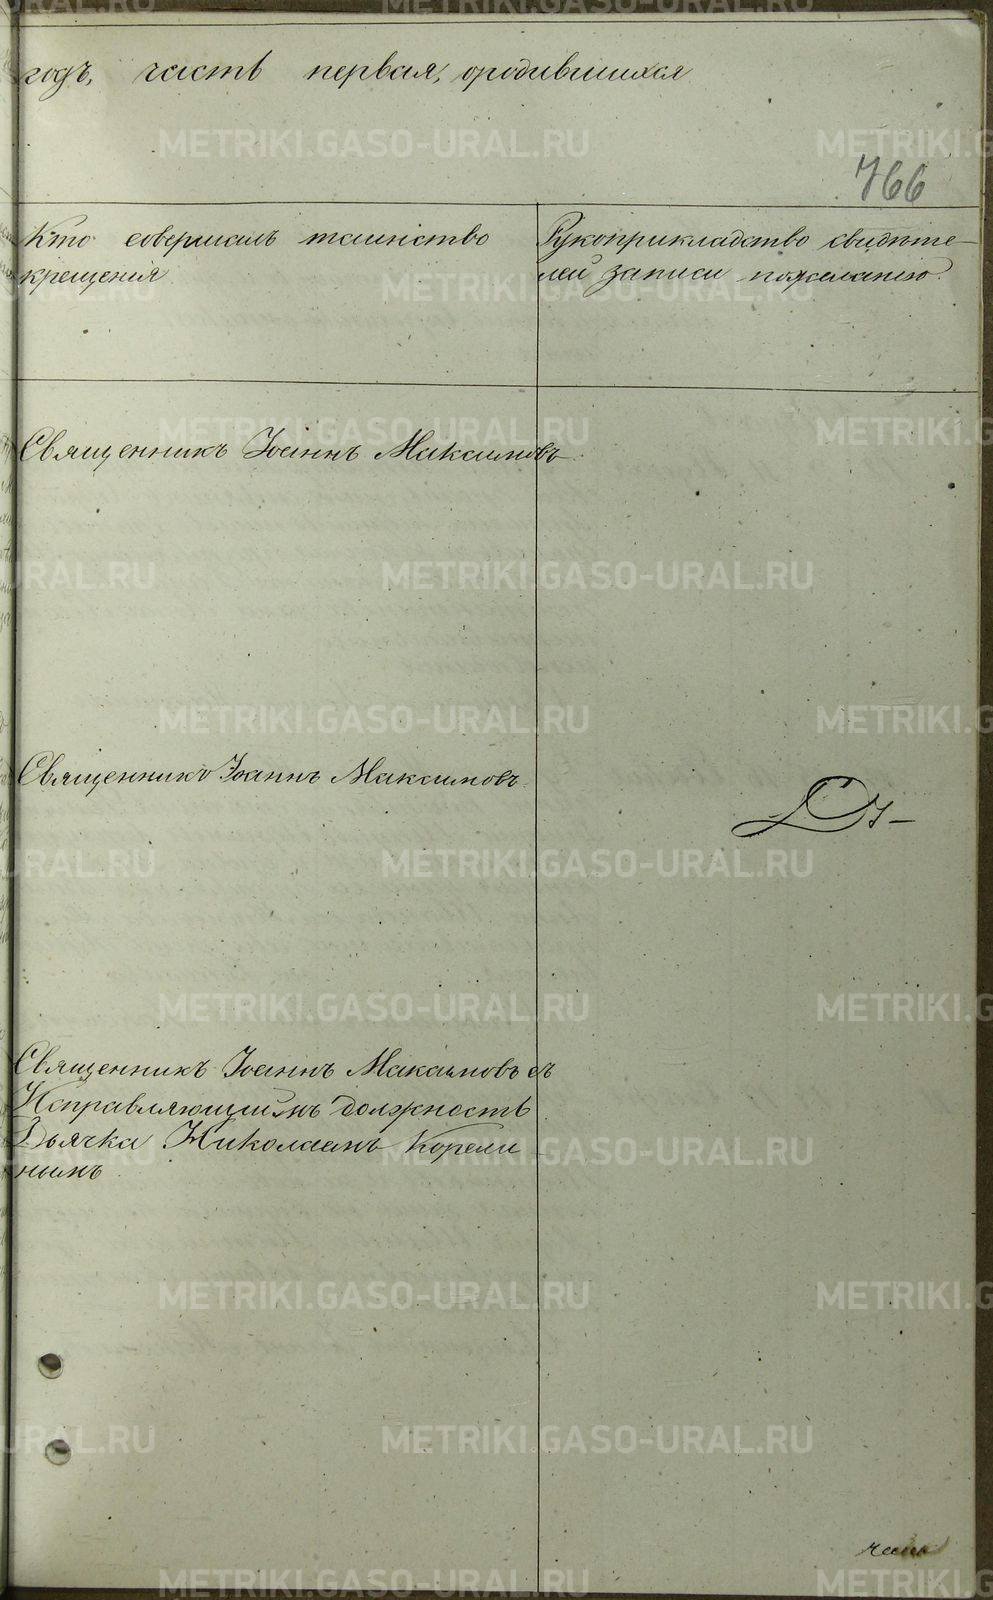 годъ, часть первая, о родившихся
766
Кто совершалъ таинство
крещения
Рукоприкладство свидѣте-
лей записи по желанію.
Священникъ Іоаннъ Максимовъ
Священникъ Іоаннъ Максимовъ
Священникъ Іоаннъ Максимовъ съ
Исправляющимъ должность
Дьячка Николаемъ Корели
нымъ
METRIKI.GASO-URAL.RU